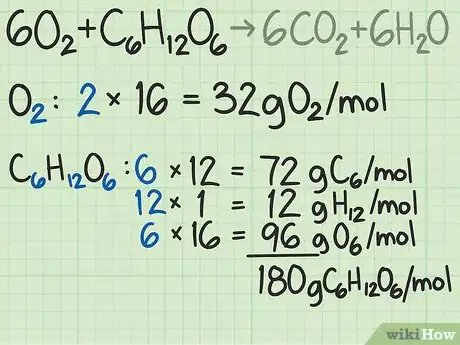 6O₂+C₆H₁₂O₆→6CO₂+6H₂O
O₂: 2×16 = 32gO₂/mol
C₆H₁₂O₆:6 ×12 = 72 gC₆/mol
12× 1 = 12 gH₁₂/mol
6 ×16 = 96 gO₆/mol
180gC₆H₁₂O₆/mol
wikiHow